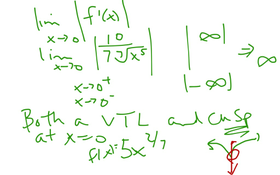 lim |f'(x)|
x→0
lim |10 / 7 ⁷√x⁵|
x→0
|∞|
⇒ ∞
|-∞|
x→0⁺
x→0⁻
Both a VTL and cusp
at x=0
f(x)=5x^(2/7)